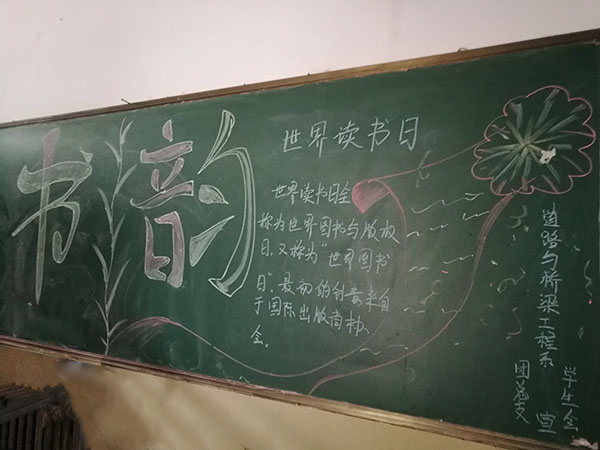 书韵
世界读书日
世界读书日全
称为世界图书与版权
日,又称为“世界图书
日”。最初的创意来自
于国际出版商协
会。
道路与桥梁工程系
团总支
学生会
宣